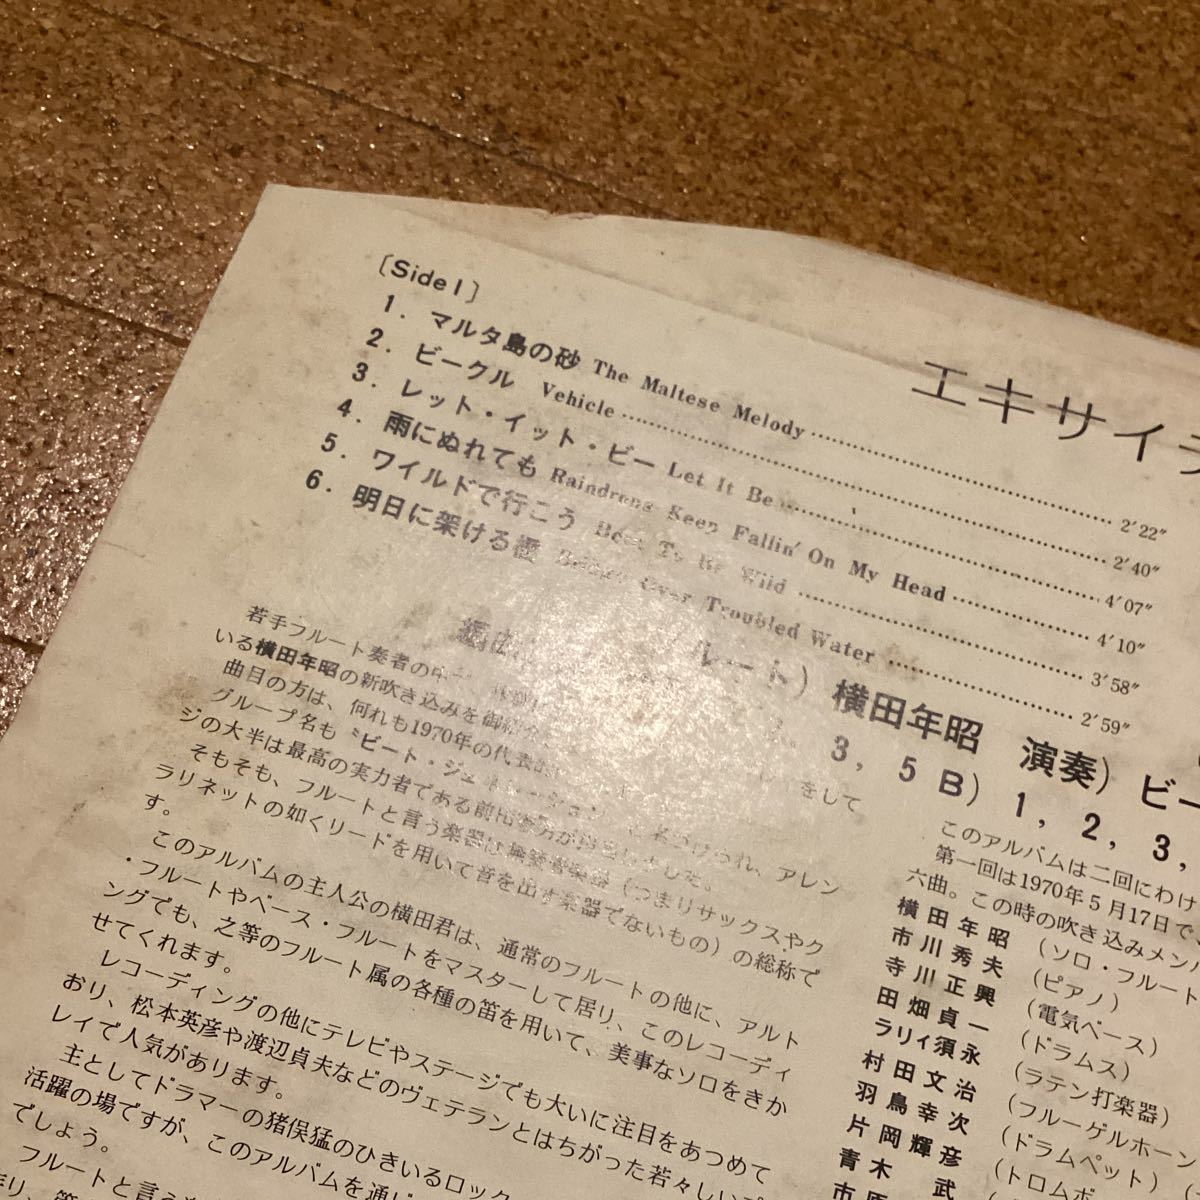 〔Side 1〕
1. マルタ島の砂 The Maltese Melody 2′22″
2. ビークル Vehicle 2′40″
3. レット・イット・ビー Let It Be 4′07″
4. 雨にぬれても Raindrops Keep Fallin' On My Head 4′10″
5. ワイルドで行こう Born To Be Wild 3′58″
6. 明日に架ける橋 Bridge Over Troubled Water 2′59″
エキサイテ
横田年昭 演奏) ビー
3, 5 B) 1, 2, 3,
若手フルート奏者の
いる横田年昭の新吹き込みを御紹介
曲目の方は、何れも1970年の代表的 をして
グループ名も〝ビート・ジェネレーション〟と名づけられ、アレン
ジの大半は最高の実力者である前田憲男が担当しました。
そもそも、フルートと言う楽器は木管楽器(つまりサックスやク
ラリネットの如くリードを用いて音を出す楽器でないもの)の総称で
す。
このアルバムの主人公の横田君は、通常のフルートの他に、アルト
・フルートやベース・フルートをマスターして居り、このレコーディ
ングでも、之等のフルート属の各種の笛を用いて、美事なソロをきか
せてくれます。
レコーディングの他にテレビやステージでも大いに注目をあつめて
おり、松本英彦や渡辺貞夫などのヴェテランとはちがった若々しいプ
レイで人気があります。
主としてドラマーの猪俣猛のひきいるロック
活躍の場ですが、このアルバムを通じ
でしょう。
フルートと言う
このアルバムは二回にわけ
第一回は1970年5月17日で、
六曲。この時の吹き込みメンバ
横田年昭 (ソロ・フルート
市川秀夫 (ピアノ)
寺川正興 (電気ベース)
田畑貞一 (ドラムス)
ラリィ須永 (ラテン打楽器)
村田文治 (フルーゲルホーン
羽鳥幸次 (ドラムペット) (
片岡輝彦 (トロムボ
青木武
市原